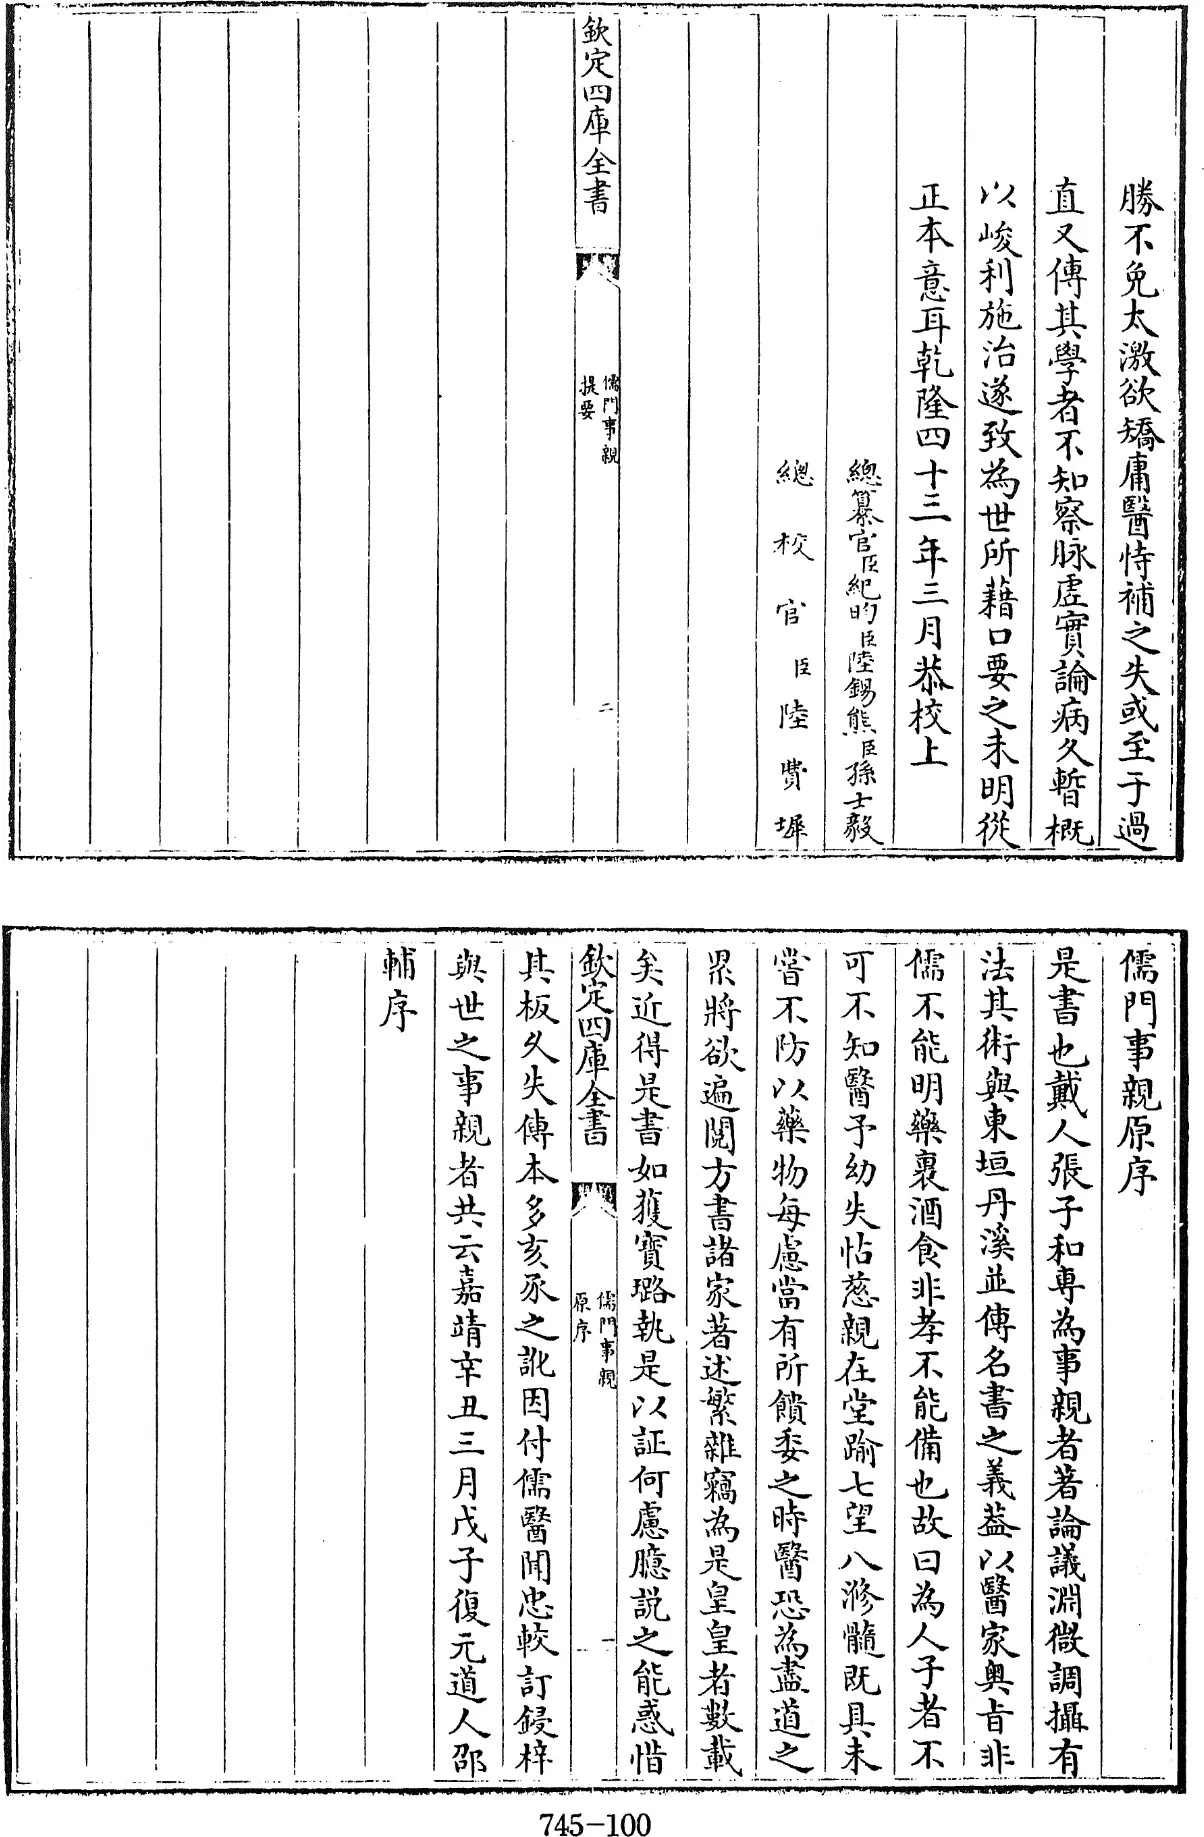 勝不免太激欲矯庸醫恃補之失或至于過
直又傳其學者不知察脉虛實論病久暫概
以峻利施治遂致為世所藉口要之未明從
正本意耳乾隆四十三年三月恭校上
總纂官臣紀昀臣陸錫熊臣孫士毅
總校官臣陸費墀
欽定四庫全書
儒門事親
提要
二
儒門事親原序
是書也戴人張子和專為事親者著論議淵微調攝有
法其術與東垣丹溪並傳名書之義葢以醫家奥旨非
儒不能明藥裹酒食非孝不能備也故曰為人子者不
可不知醫予幼失怙慈親在堂踰七望八滫髓既具未
嘗不防以藥物每慮當有所饋委之時醫恐為盡道之
累將欲遍閱方書諸家著述繁雜竊為是皇皇者數載
矣近得是書如獲寳璐執是以証何慮臆説之能惑惜
欽定四庫全書
儒門事親
原序
一
其板久失傳本多亥豕之訛因付儒醫聞忠較訂鋟梓
與世之事親者共云嘉靖辛丑三月戊子復元道人邵
輔序
745-100